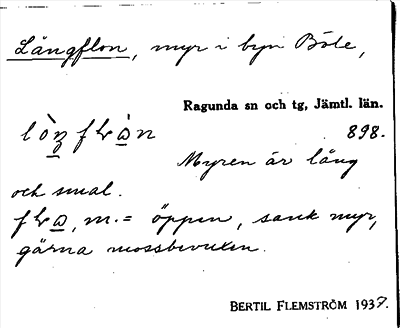 Långflon, myr i byn Böle,
Ragunda sn och tg, Jämtl. län.
898.
Myren är lång
och smal.
m. = öppen, sank myr,
gärna mossbevuxen.
BERTIL FLEMSTRÖM 1937.